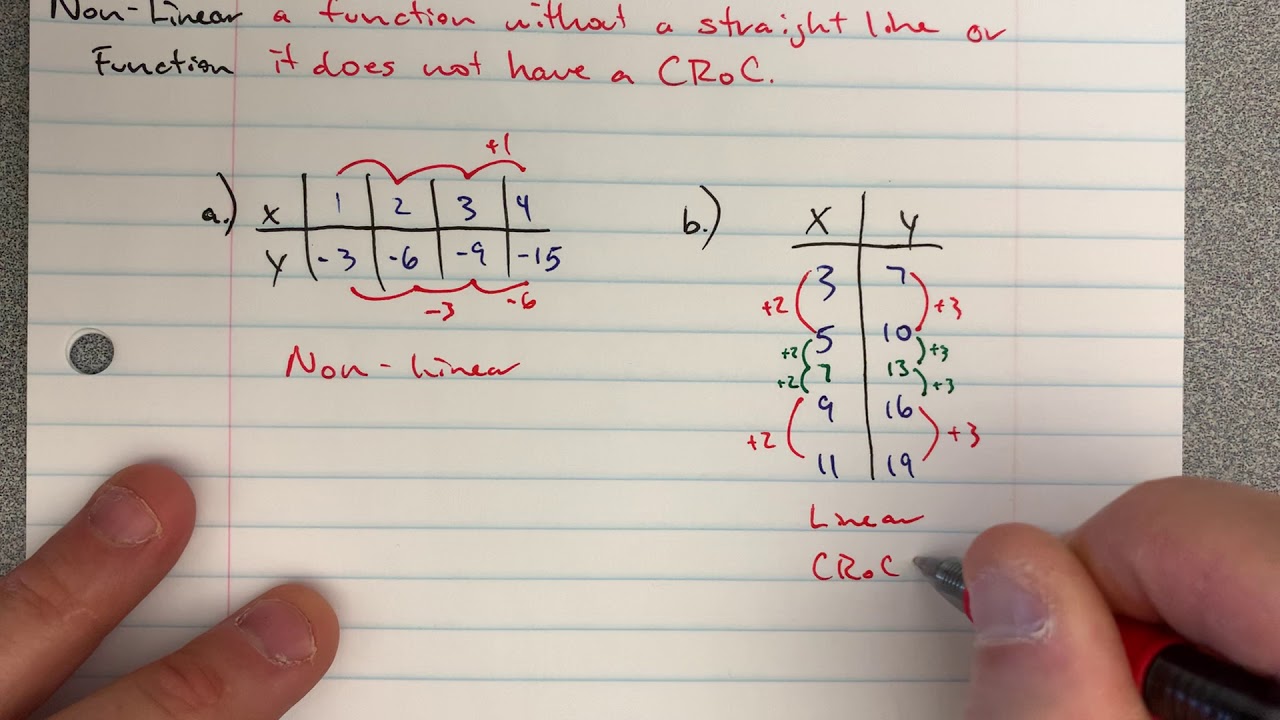 Non-Linear a function without a straight line or
Function it does not have a CRoC.
+1
a.) x 1 2 3 4
y -3 -6 -9 -15
-3 -6
Non-Linear
b.) X Y
3 7
+2 +3
5 10
+2 +3
7 13
+2 +3
9 16
+2 +3
11 19
Linear
CRoC